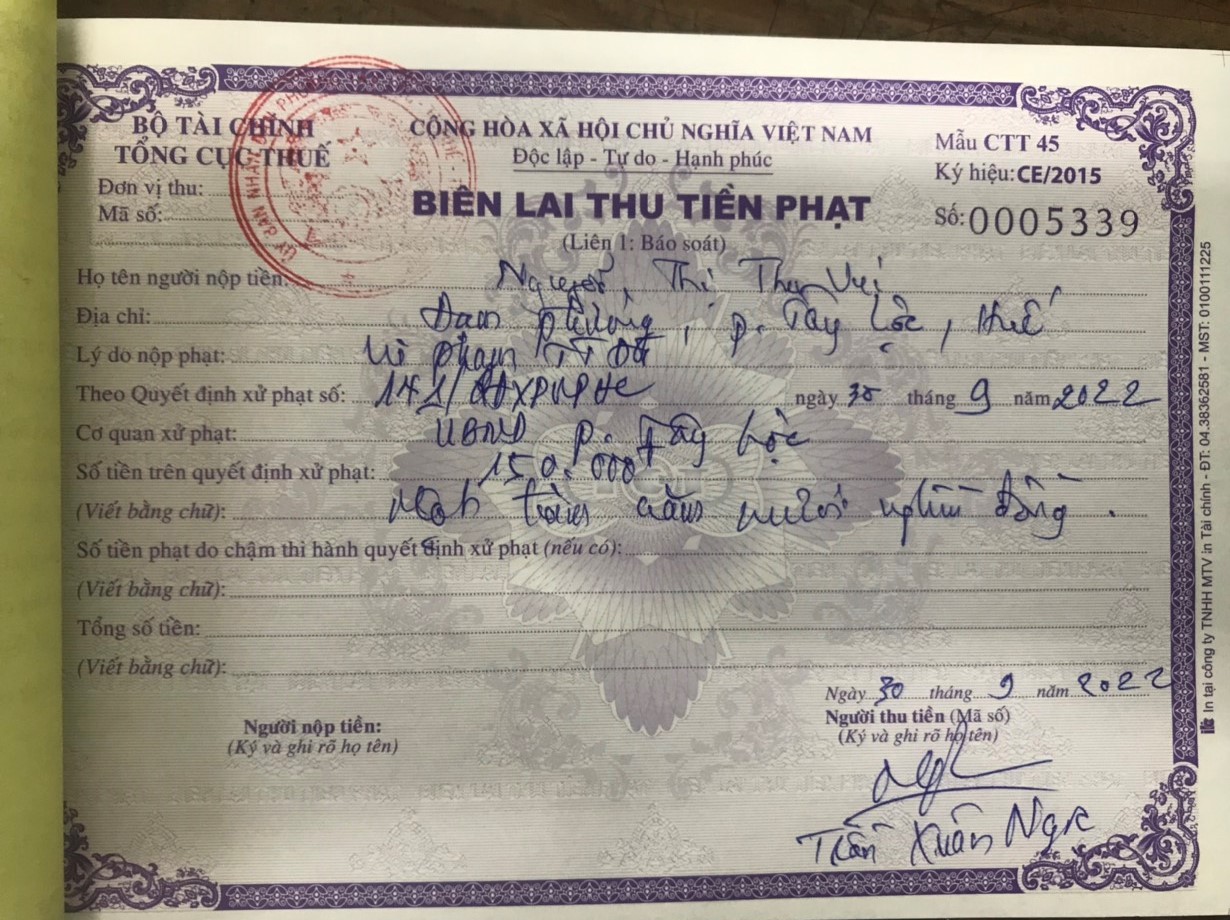 BỘ TÀI CHÍNH
TỔNG CỤC THUẾ
Đơn vị thu:
Mã số:
CỘNG HÒA XÃ HỘI CHỦ NGHĨA VIỆT NAM
Độc lập - Tự do - Hạnh phúc
BIÊN LAI THU TIỀN PHẠT
(Liên 1: Báo soát)
Mẫu CTT 45
Ký hiệu: CE/2015
Số: 0005339
Họ tên người nộp tiền: Nguyễn Thị
Địa chỉ: p. Tây Lộc, Huế
Lý do nộp phạt: Vi phạm TTĐT
Theo Quyết định xử phạt số: /QĐXPVPHC ngày 30 tháng 9 năm 2022
Cơ quan xử phạt: UBND p. Tây Lộc
Số tiền trên quyết định xử phạt: 150.000đ
(Viết bằng chữ): Một trăm năm mươi nghìn đồng.
Số tiền phạt do chậm thi hành quyết định xử phạt (nếu có):
(Viết bằng chữ):
Tổng số tiền:
(Viết bằng chữ):
Ngày 30 tháng 9 năm 2022
Người nộp tiền:
(Ký và ghi rõ họ tên)
Người thu tiền (Mã số)
(Ký và ghi rõ họ tên)
Trần Xuân
In tại công ty TNHH MTV in Tài chính - ĐT: 04.38362581 - MST: 0100111225